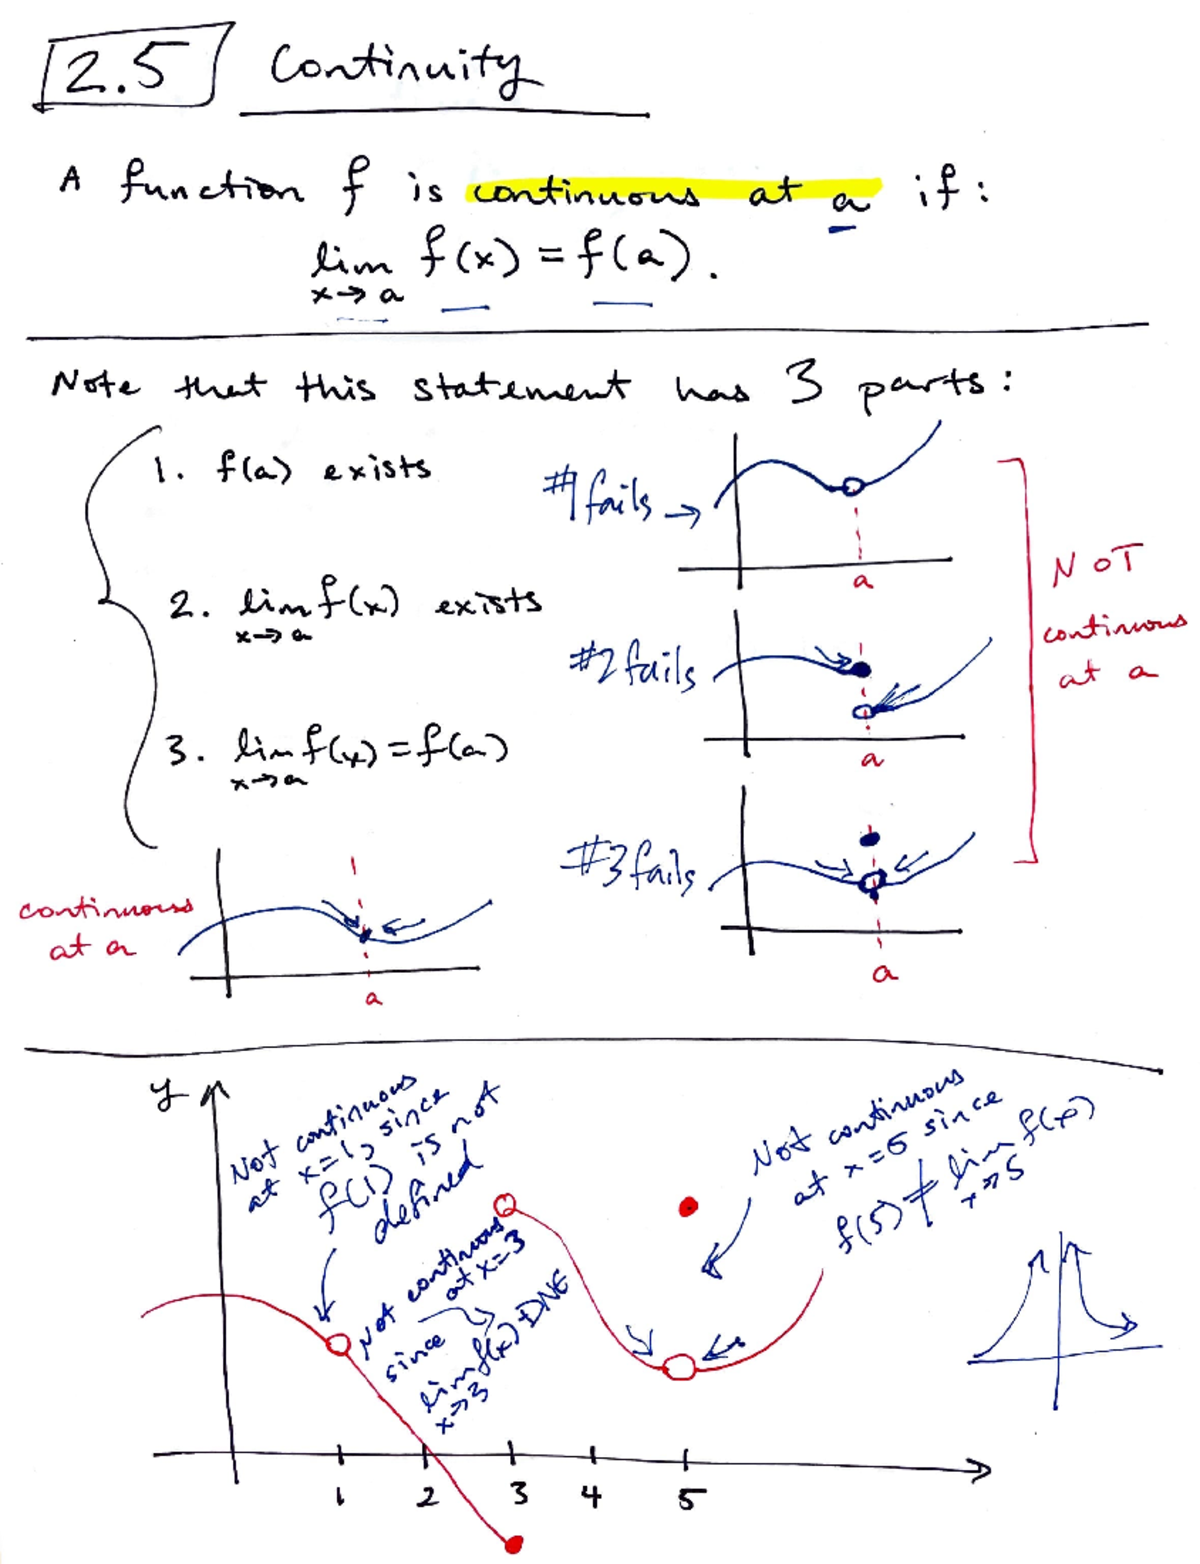 2.5 Continuity
A function f is continuous at a if:
lim f(x) = f(a).
x→a
Note that this statement has 3 parts:
1. f(a) exists
#1 fails →
a
2. lim f(x) exists
x→a
#2 fails
a
3. lim f(x) = f(a)
x→a
#3 fails
a
NOT
continuous
at a
continuous
at a
a
y
Not continuous
at x=1, since
f(1) is not
defined
Not continuous
at x=3
since
lim f(x) DNE
x→3
Not continuous
at x=5 since
f(5) ≠ lim f(x)
x→5
1 2 3 4 5